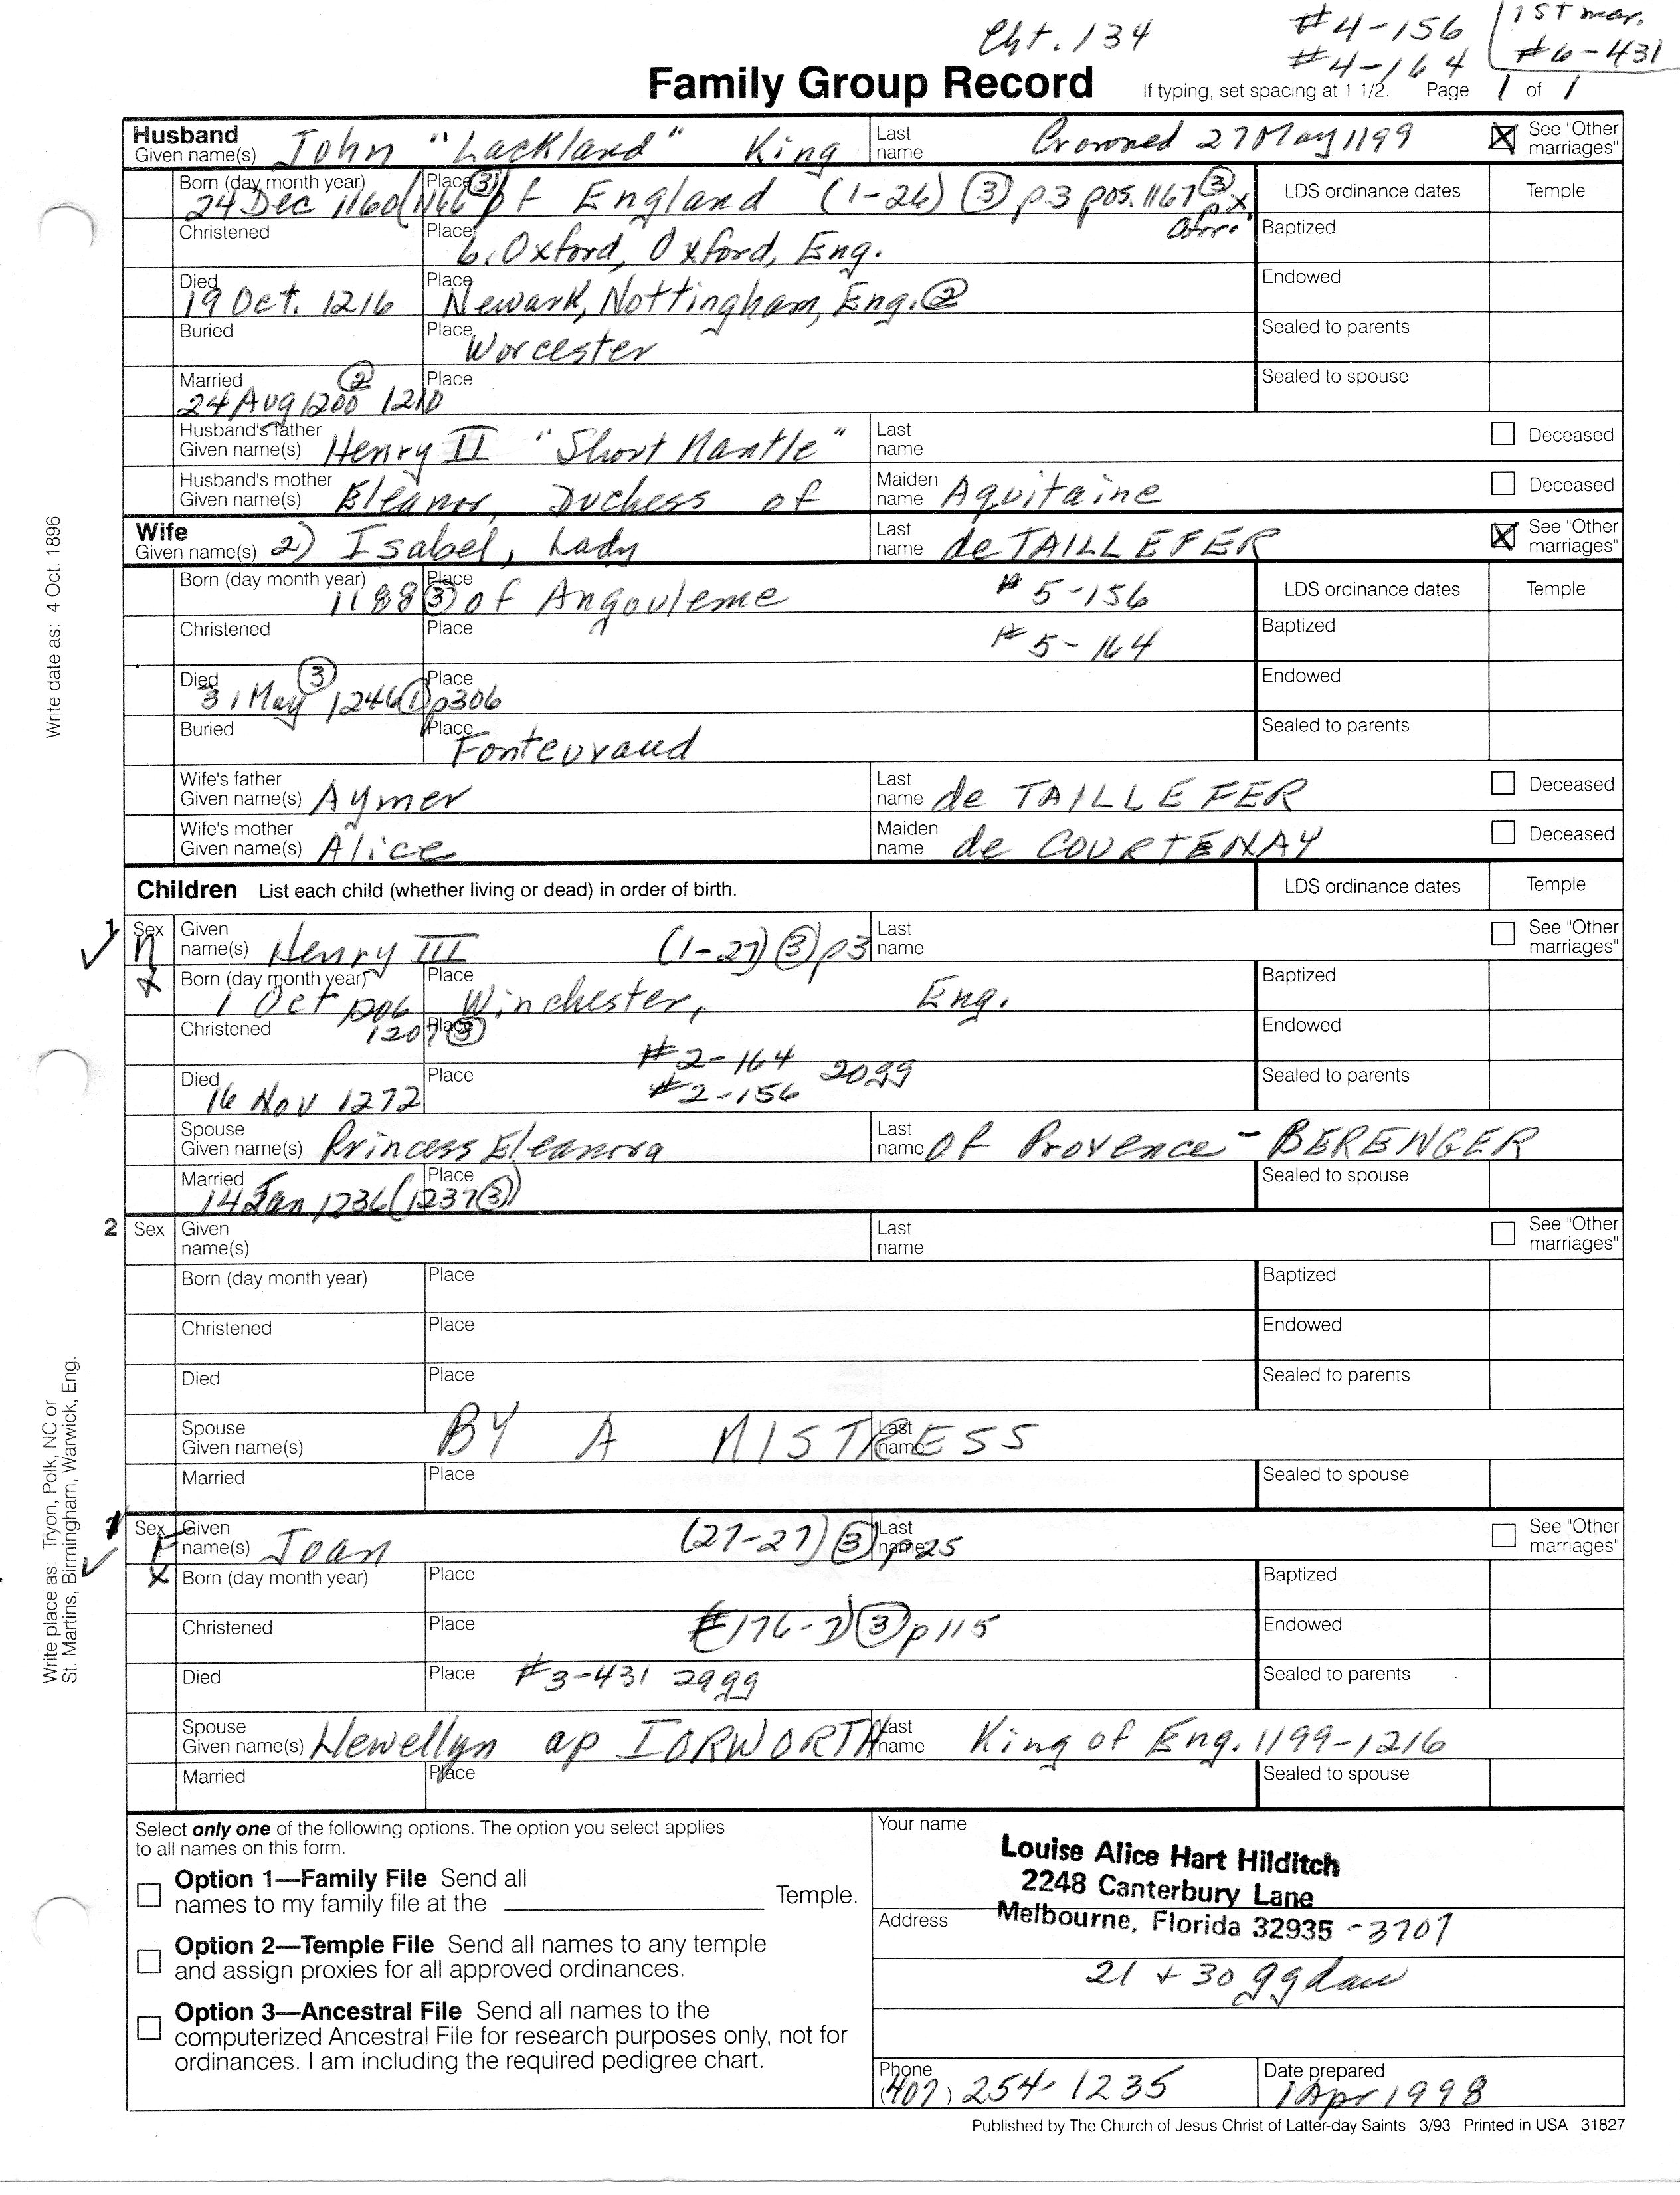 Cht. 134 #4-156 1st mar.
#4-164 #6-431
Family Group Record If typing, set spacing at 1 1/2. Page 1 of 1
Husband
Given name(s) John "Lackland" King Last name Crowned 27 May 1199 See "Other marriages"
Born (day month year) 24 Dec 1160 (1166 3 Place of England (1-26) 3 p3 pos. 1167 3 x LDS ordinance dates Temple
Christened Place b. Oxford, Oxford, Eng. Baptized
Died 19 Oct. 1216 Place Newark, Nottingham, Eng. 2 Endowed
Buried Place Worcester Sealed to parents
Married 24 Aug 1200 2 1210 Place Sealed to spouse
Husband's father
Given name(s) Henry II "Short Mantle" Last name Deceased
Husband's mother
Given name(s) Eleanor, Duchess of Maiden name Aquitaine Deceased
Wife
Given name(s) 2) Isabel, Lady Last name de TAILLEFER See "Other marriages"
Born (day month year) 1188 3 Place of Angouleme #5-156 LDS ordinance dates Temple
Christened Place #5-164 Baptized
Died 31 May 3 1246 1 p306 Place Endowed
Buried Place Fontevraud Sealed to parents
Wife's father
Given name(s) Aymer Last name de TAILLEFER Deceased
Wife's mother
Given name(s) Alice Maiden name de COURTENAY Deceased
Children List each child (whether living or dead) in order of birth. LDS ordinance dates Temple
1 Sex M Given name(s) Henry III (1-27) 3 p3 Last name See "Other marriages"
x Born (day month year) 1 Oct 1206 Place Winchester, Eng. Baptized
Christened 1207 3 Place Endowed
#2-164 20gg
Died 16 Nov 1272 Place #2-156 Sealed to parents
Spouse
Given name(s) Princess Eleanora Last name of Provence - BERENGER
Married 14 Jan 1236 (1237 3) Place Sealed to spouse
2 Sex Given name(s) Last name See "Other marriages"
Born (day month year) Place Baptized
Christened Place Endowed
Died Place Sealed to parents
Spouse
Given name(s) BY A MISTRESS Last name
Married Place Sealed to spouse
Sex F Given name(s) Joan (27-27) 3 p25 Last name See "Other marriages"
x Born (day month year) Place Baptized
Christened Place 176-7) 3 p115 Endowed
Died Place #3-431 29gg Sealed to parents
Spouse
Given name(s) Llewellyn ap IORWORTH Last name King of Eng. 1199-1216
Married Place Sealed to spouse
Select only one of the following options. The option you select applies
to all names on this form.
Option 1—Family File Send all
names to my family file at the Temple.
Option 2—Temple File Send all names to any temple
and assign proxies for all approved ordinances.
Option 3—Ancestral File Send all names to the
computerized Ancestral File for research purposes only, not for
ordinances. I am including the required pedigree chart.
Your name
Louise Alice Hart Hilditch
2248 Canterbury Lane
Address Melbourne, Florida 32935 -3707
21 + 30 ggdau
Phone (407) 254-1235 Date prepared 1 Apr 1998
Published by The Church of Jesus Christ of Latter-day Saints 3/93 Printed in USA 31827
Write date as: 4 Oct. 1896
Write place as: Tryon, Polk, NC or
St. Martins, Birmingham, Warwick, Eng.